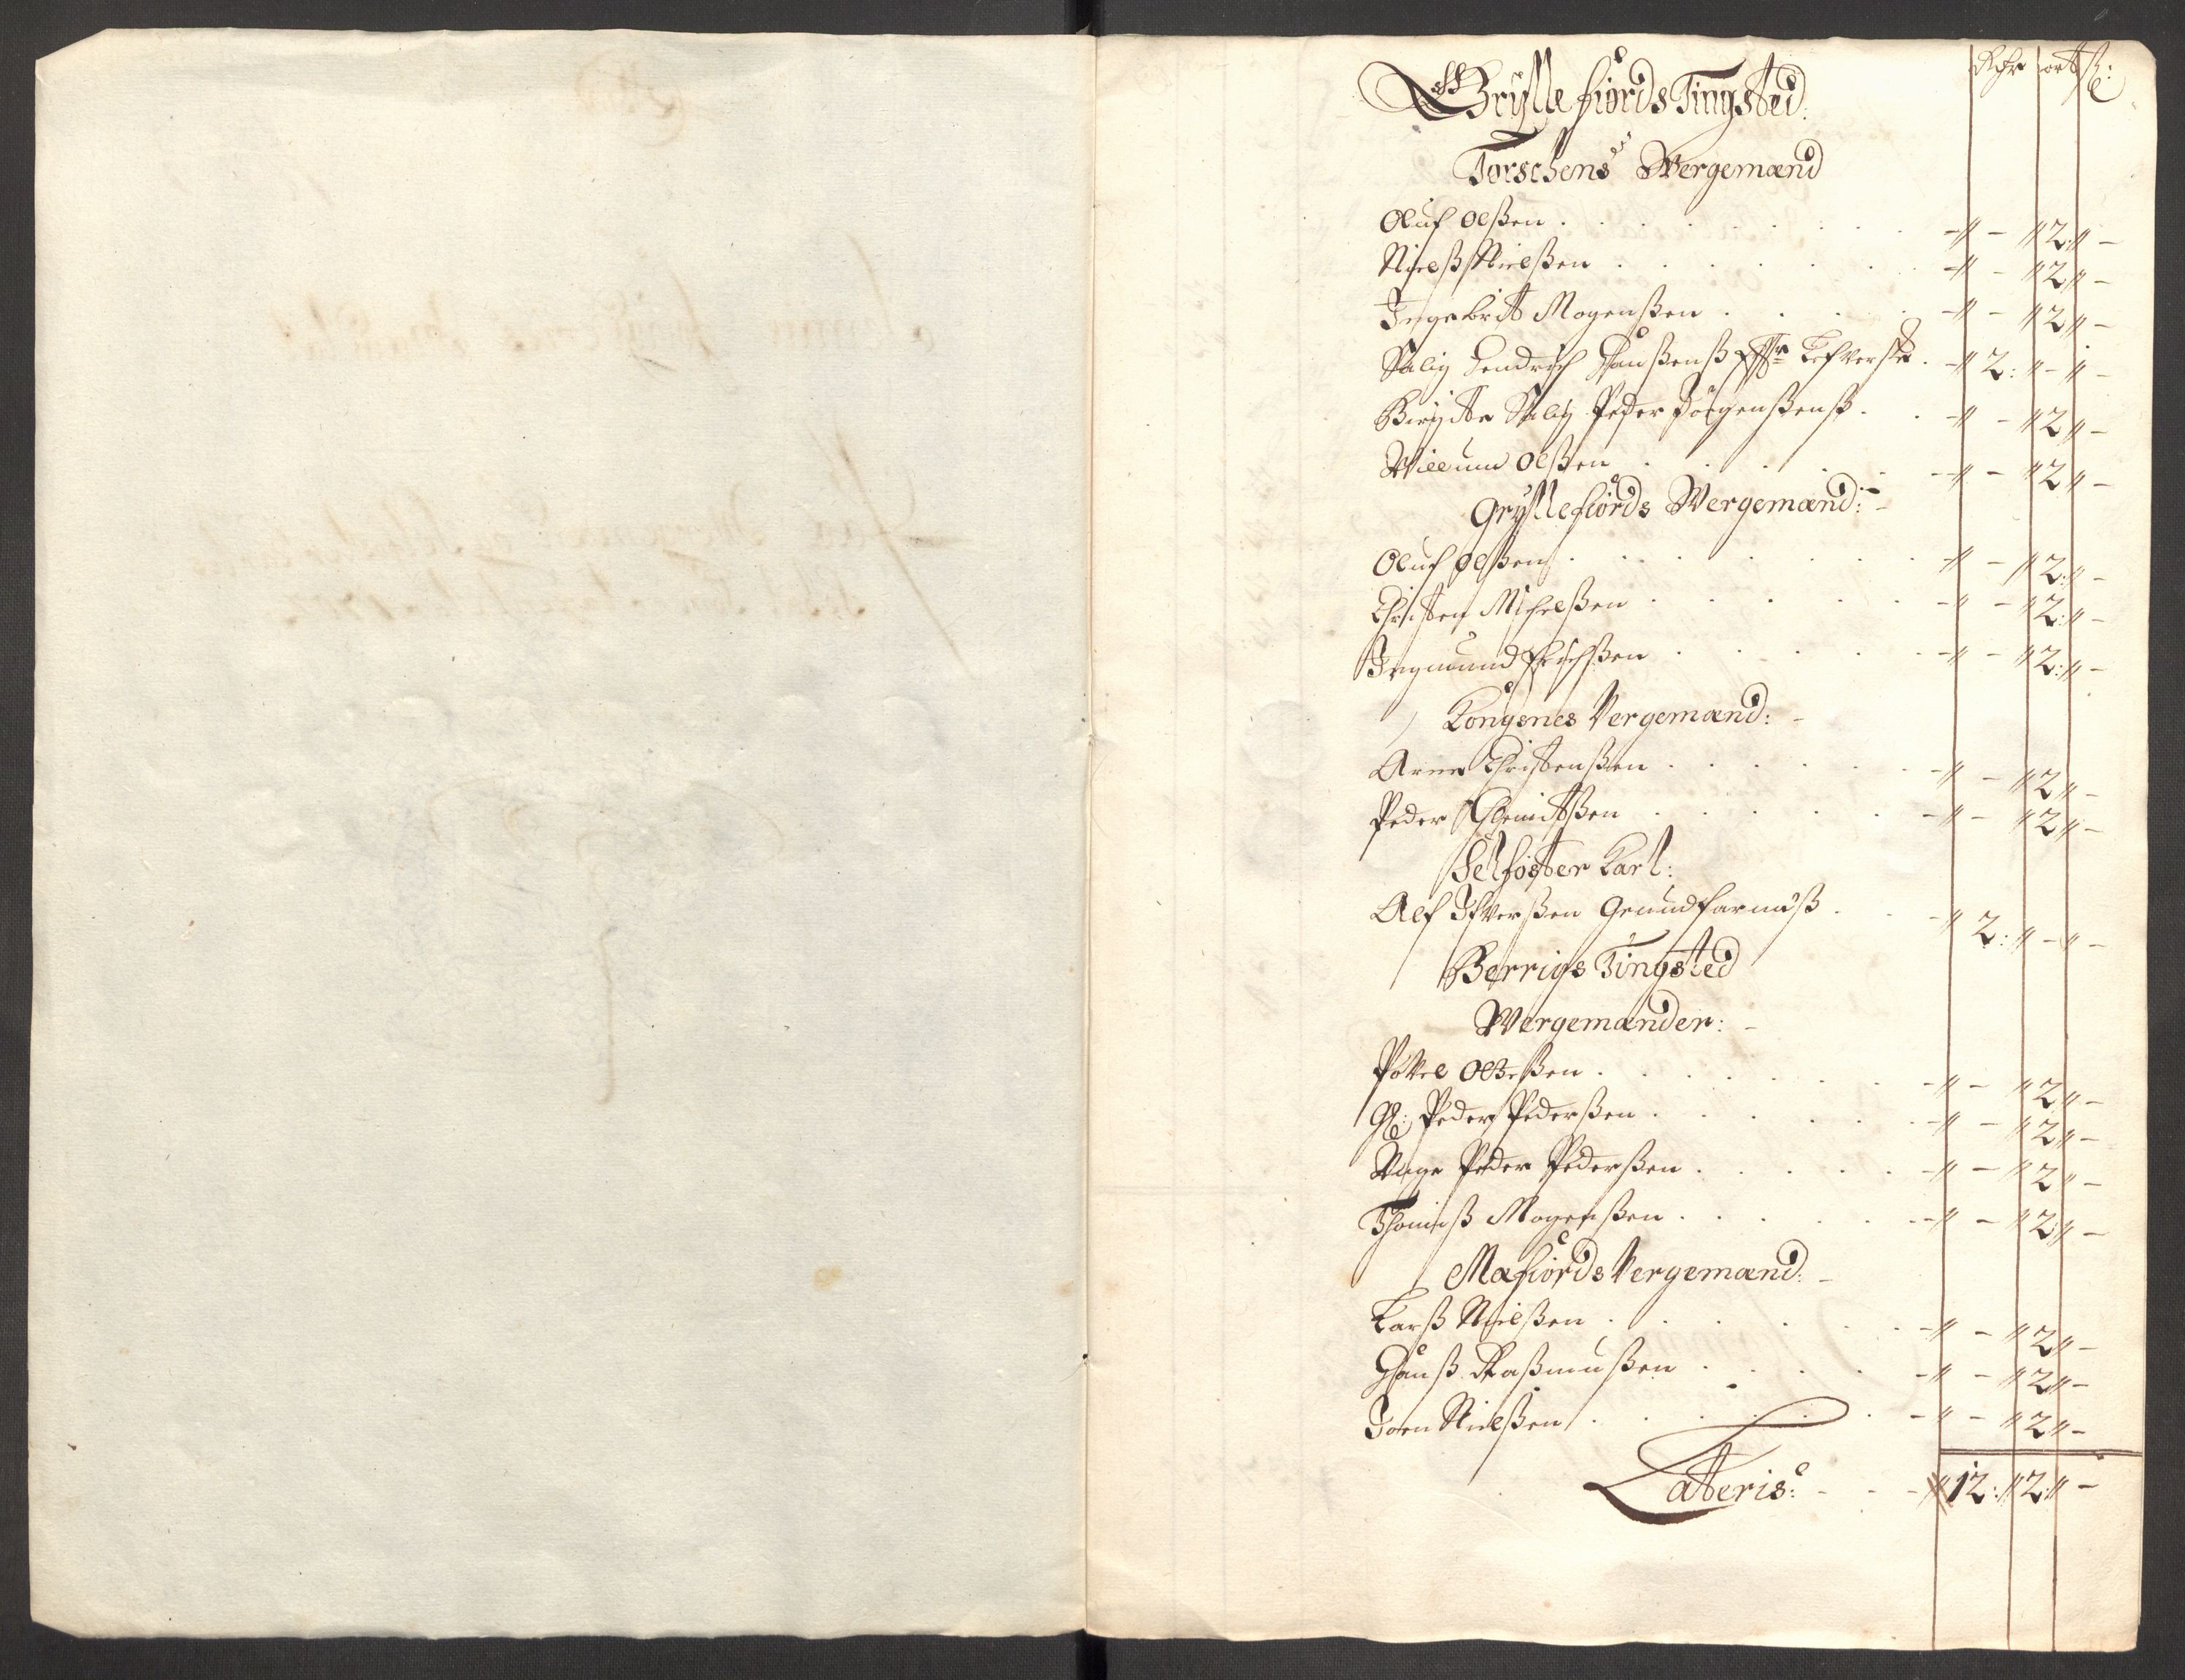 Rdr ort ß:
Gryllefiords Tingsted:
Torschens Wergemænd
Oluf Olßen . . . - " - " 2 " -
Nielß Nielßen . . . - " - " 2 " -
Ingebrit Mogenßen . . . - " - " 2 " -
Salig Hendrich Hanßenß Efterlefverske . - " 2: " - " -
Birgitte Salig Peder Jörgenßenß . . - " - " 2 " -
Willum Olßen . . . - " - " 2 " -
Gryllefiords Wergemænd: -
Oluf Olßen . . . - " - " 2: " -
Christen Michelßen . . . - " - " 2: " -
Ingmund Erichßen . . . - " - " 2: " -
Kongenes Vergemænd: -
Arne Christenßen . . . - " - " 2 " -
Peder Clemitßen . . . - " - " 2 " -
Selfoster Karl:
Alf Ifverßen Grundfarnæß . . - " 2: " - " -
Berrigs Tingsted
Wergemænder: -
Povel Olßen . . . - " - " 2 " -
Gl: Peder Pederßen . . . - " - " 2 " -
Unge Peder Pederßen . . . - " - " 2 " -
Thomiß Mogenßen . . . - " - " 2 " -
Mefiords Vergemænd: -
Larß Nielßen . . . - " - " 2 " -
Hanß Raßmußen . . . - " - " 2 " -
Joen Nielßen . . . - " - " 2 " -
Lateris: - - - " 12: " 2: " -